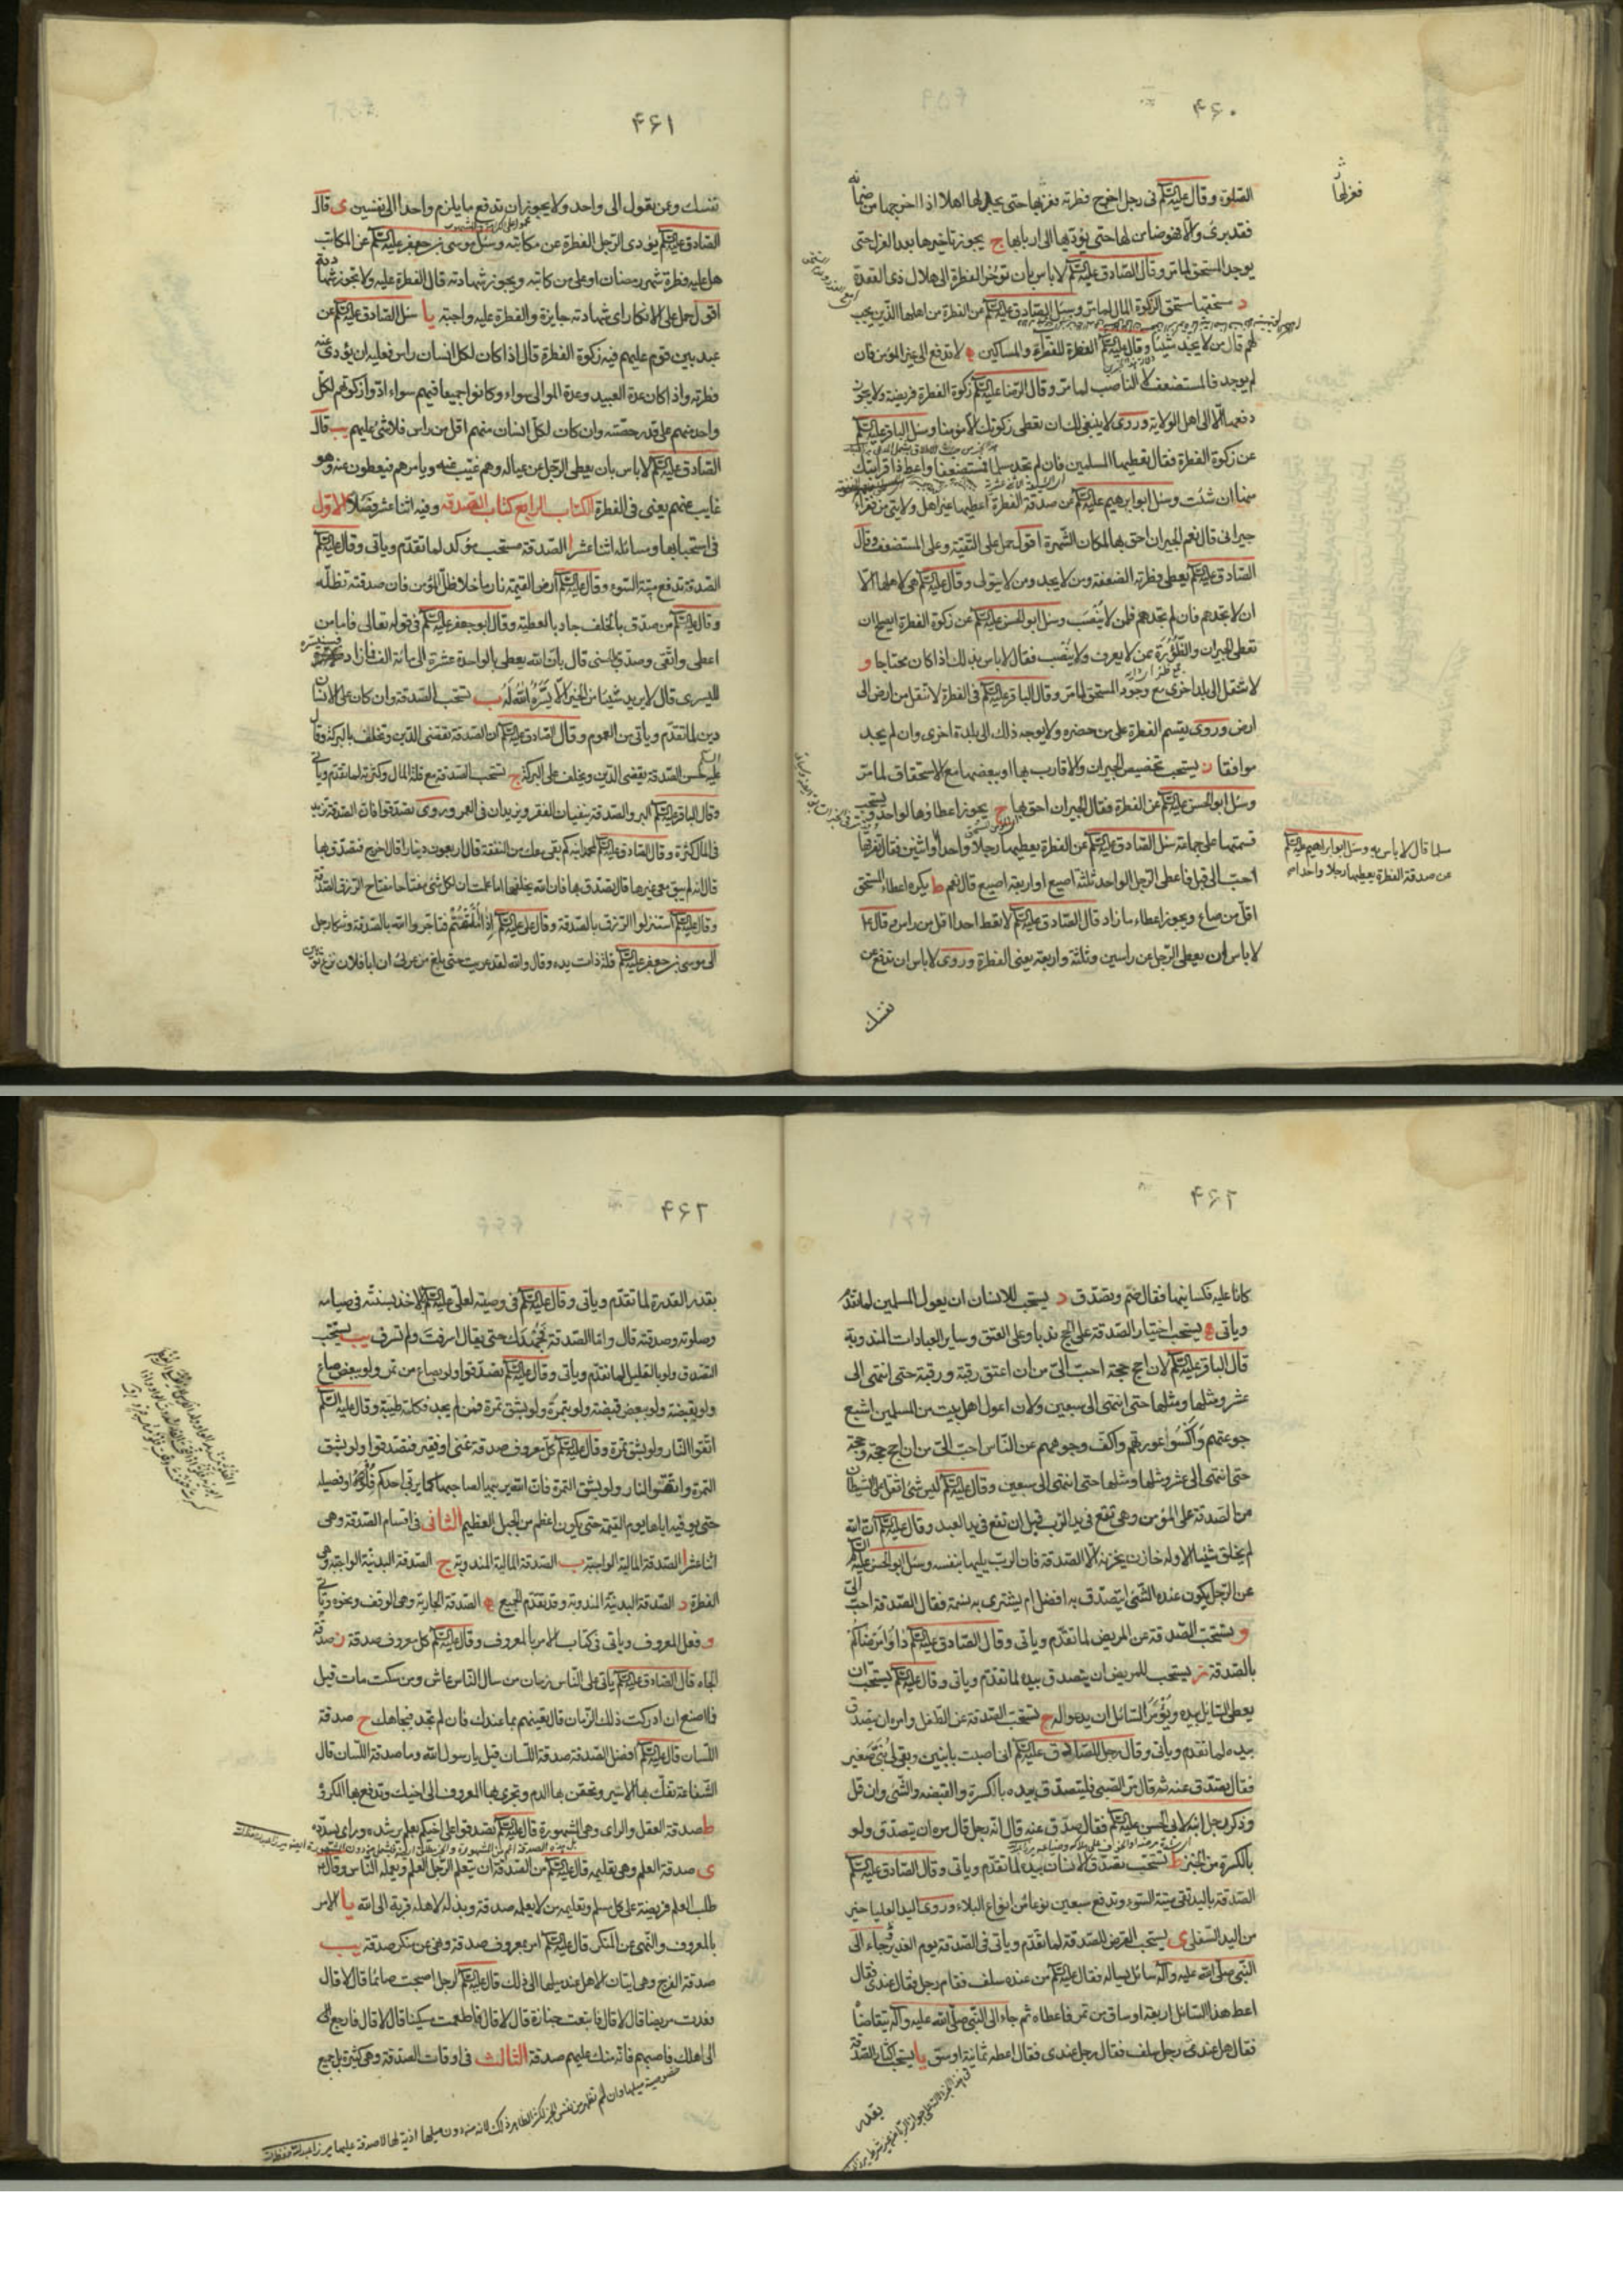 ۴۶۰
الصلوة وقال عليه السلم فى رجل اخرج فطرته فعزلها حتى يجد لها اهلا اذا اخرجها من ضمانه
فقد برئ والا فهو ضامن لها حتى يؤديها الى اربابها ج يجوز تاخيرها بعد العزل حتى
يوجد المستحق لما مر وقال الصادق عليه السلم لا باس بان تؤخر الفطرة الى هلال ذى القعدة
د مستحقها مستحق الزكوة المال لما مر وسئل الصادق عليه السلم عن الفطرة من اهلها الذين يجب
لهم قال من لا يجد شيئا وقال عليه السلم الفطرة للفقراء والمساكين ه لا تدفع الى غير المؤمن فان
لم يوجد فالمستضعف لا الناصب لما مر وقال الرضا عليه السلم زكوة الفطرة فريضة ولا يجوز
دفعها الا الى اهل الولاية وروى لا ينبغى لك ان تعطى زكوتك الا مؤمنا وسئل الباقر عليه السلم
عن زكوة الفطرة فقال تعطيها المسلمين فان لم تجد مسلما فمستضعفا واعط ذا قرابتك
منها ان شئت وسئل ابو ابرهيم عليه السلم عن صدقة الفطرة اعطيها غير اهل ولايتى من فقراء
جيرانى قال نعم الجيران احق بها لمكان الشهرة اقول حمل على التقية وعلى المستضعف وقال
الصادق عليه السلم يعطى فطرته الضعفة ومن لا يجد ومن لا يتولى وقال عليه السلم هى لاهلها الا
ان لا تجدهم فان لم تجدهم فلمن لا ينصب وسئل ابو الحسن عليه السلم عن زكوة الفطرة ايصلح ان
تعطى الجيران والظؤرة ممن لا يعرف ولا ينصب فقال لا باس بذلك اذا كان محتاجا و
لا تنقل الى بلد اخرى مع وجود المستحق لما مر وقال الباقر عليه السلم فى الفطرة لا تنقل من ارض الى
ارض وروى يقسم الفطرة على من حضره ولا يوجه ذلك الى بلدة اخرى وان لم يجد
موافقا ز يستحب تخصيص الجيران والاقارب بها او ببعضها مع الاستحقاق لما مر
وسئل ابو الحسن عليه السلم عن الفطرة فقال الجيران احق بها ح يجوز اعطاؤها لواحد ويستحب
قسمتها على جماعة سئل الصادق عليه السلم عن الفطرة يعطيها رجلا واحدا او اثنين فقال تفرقها
احب الى قيل فاعطى الرجل الواحد ثلثة اصيع او اربعة اصيع قال نعم ط يكره اعطاء المستحق
اقل من صاع ويجوز اعطاء ما زاد قال الصادق عليه السلم لا تعط احدا اقل من راس وقال ع
لا باس ان يعطى الرجل عن راسين وثلثة واربعة يعنى الفطرة وروى لا باس ان تدفع عن
نفسك
مسلما قال لا باس به وسئل ابو ابراهيم عليه السلم
عن صدقة الفطرة يعطيها رجلا واحدا
۴۶۱
نفسك وعن تعول الى واحد ولا يجوز ان تدفع ما يلزم واحدا الى نفسين ى قال
الصادق عليه السلم يؤدى الرجل الفطرة عن مكاتبه وسئل موسى بن جعفر عليه السلم عن المكاتب
هل عليه فطرة شهر رمضان او على من كاتبه ويجوز شهادته قال الفطرة عليه ولا تجوز شهادته
اقول حمل على الانكار اى شهادته جايزة والفطرة عليه واجبة يا سئل الصادق عليه السلم عن
عبد بين قوم عليهم فيه زكوة الفطرة قال اذا كان لكل انسان راس فعليه ان يؤدى عنه
فطرته واذا كان عدة العبيد وعدة الموالى سواء وكانوا جميعا فيهم سواء ادوا زكوتهم لكل
واحد منهم على قدر حصته وان كان لكل انسان منهم اقل من راس فلا شئ عليهم يب قال
الصادق عليه السلم لا باس بان يعطى الرجل عن عياله وهم غيب عنه ويامرهم فيعطون عنه وهو
غايب عنهم يعنى فى الفطرة الكتاب الرابع كتاب الصدقه وفيه اثنا عشر فصلا الاول
فى استحبابها ومسائله اثنا عشر ا الصدقة مستحب مؤكد لما تقدم وياتى وقال عليه السلم
الصدقة تدفع ميتة السوء وقال عليه السلم ارض القيمة نار ما خلا ظل المؤمن فان صدقته تظله
وقال عليه السلم من صدق بالخلف جاد بالعطية وقال ابو جعفر عليه السلم فى قوله تعالى فاما من
اعطى واتقى وصدق بالحسنى قال بان الله يعطى بالواحدة عشرة الى مائة الف فما زاد فسنيسره
لليسرى قال لا يريد شيئا من الخير الا يسره الله له ب تستحب الصدقة وان كان على الانسان
دين لما تقدم وياتى من العموم وقال الصادق عليه السلم ان الصدقة تقضى الدين وتخلف بالبركة وقال
عليه السلم حسن الصدقة يقضى الدين ويخلف على البركة ج تستحب الصدقة مع قلة المال وكثرته لما تقدم وياتى
وقال الباقر عليه السلم البر والصدقة ينفيان الفقر ويزيدان فى العمر وروى تصدقوا فان الصدقة تزيد
فى المال كثرة وقال الصادق عليه السلم لمحمد ابنه كم بقى معك من النفقة قال اربعون دينارا قال اخرج فتصدق بها
قال انه لم يبق معى غيرها قال تصدق بها فان الله يخلفها اما علمت ان لكل شئ مفتاحا ومفتاح الرزق الصدقة
وقال عليه السلم استنزلوا الرزق بالصدقة وقال على عليه السلم اذا املقتم فتاجروا الله بالصدقة وشكا رجل
الى موسى بن جعفر عليه السلم قلة ذات يده وقال والله لقد عريت حتى بلغ من عريى ان ابا فلان نزع ثوبين
۴۶۲
كانا عليه فكسانيهما فقال صم وتصدق د يستحب للانسان ان يعول المسلمين لما تقدم
وياتى ه يستحب اختيار الصدقة على الحج ندبا وعلى العتق وساير العبادات المندوبة
قال الباقر عليه السلم لان احج حجة احب الى من ان اعتق رقبة ورقبة حتى انتهى الى
عشر ومثلها ومثلها حتى انتهى الى سبعين ولان اعول اهل بيت من المسلمين اشبع
جوعتهم واكسوا عورتهم واكف وجوههم عن الناس احب الى من ان احج حجة وحجة
حتى انتهى الى عشر ومثلها ومثلها حتى انتهى الى سبعين وقال عليه السلم ليس شئ اثقل على الشيطان
من الصدقة على المؤمن وهى تقع فى يد الرب قبل ان تقع فى يد العبد وقال عليه السلم ان الله
لم يخلق شيئا الا وله خازن يخزنه الا الصدقة فان الرب يليها بنفسه وسئل ابو الحسن عليه السلم
عن الرجل يكون عنده الشئ ايتصدق به افضل ام يشترى به نسمة فقال الصدقة احب الى
و يستحب الصدقة عن المريض لما تقدم وياتى وقال الصادق عليه السلم داووا مرضاكم
بالصدقة ز يستحب للمريض ان يتصدق بيده لما تقدم وياتى وقال عليه السلم يستحب ان
يعطى السايل بيده ويؤمر السائل ان يدعو له ح تستحب الصدقة عن الطفل وامره ان يتصدق
بيده لما تقدم وياتى وقال رجل للصادق عليه السلم انى اصبت بابنين وبقى لى بنى صغير
فقال تصدق عنه ثم قال مر الصبى فليتصدق بيده بالكسرة والقبضة والشئ وان قل
وذكر رجل ابنه لابى الحسن عليه السلم فقال تصدق عنه قال انه رجل قال مره ان يتصدق ولو
بالكسرة من الخبز ط تستحب تصدق الانسان بيده لما تقدم وياتى وقال الصادق عليه السلم
الصدقة باليد تقى ميتة السوء وتدفع سبعين نوعا من انواع البلاء وروى اليد العليا خير
من اليد السفلى ى يستحب القرض للصدقة لما تقدم وياتى فى الصدقة يوم الغدير وجاء الى
النبى صلى الله عليه وآله سائل يساله فقال عليه السلم من عنده سلف فقام رجل فقال عندى فقال
اعط هذا السائل اربعة اوساق من تمر فاعطاه ثم جاء الى النبى صلى الله عليه وآله يتقاضا
فقال هل عندى رجل سلف فقال رجل عندى فقال اعطه ثمانية اوسق يا يستحب كثرة الصدقة
بقدر
۴۶۲
بقدر القدرة لما تقدم وياتى وقال عليه السلم فى وصيته لعلى عليه السلم الاخذ بسنته فى صيامه
وصلوته وصدقته قال واما الصدقة فجهدك حتى يقال اسرفت ولم تسرف يب يستحب
التصدق ولو بالقليل لما تقدم وياتى وقال عليه السلم تصدقوا ولو بصاع من تمر ولو ببعض صاع
ولو بقبضة ولو ببعض قبضة ولو بتمرة ولو بشق تمرة فمن لم يجد فبكلمة طيبة وقال عليه السلم
اتقوا النار ولو بشق تمرة وقال عليه السلم كل معروف صدقة غنى او فقير فتصدقوا ولو بشق
التمرة واتقوا النار ولو بشق التمرة فان الله يربيها لصاحبها كما يربى احدكم فلوه او فصيله
حتى يوفيه اياها يوم القيمة حتى يكون اعظم من الجبل العظيم الثانى فى اقسام الصدقة وهى
اثنا عشر ا الصدقة المالية الواجبة ب الصدقة المالية المندوبة ج الصدقة البدنية الواجبة وهى
الفطرة د الصدقة البدنية المندوبة وقد تقدم الجميع ه الصدقة الجارية وهى الوقف ونحوه وياتى
و فعل المعروف وياتى فى كتاب الامر بالمعروف وقال عليه السلم كل معروف صدقة ز صدقة
الجاه قال الصادق عليه السلم ياتى على الناس زمان من سال الناس عاش ومن سكت مات قيل
فما اصنع ان ادركت ذلك الزمان قال تعينهم بما عندك فان لم تجد فبجاهك ح صدقة
اللسان قال عليه السلم افضل الصدقة صدقة اللسان قيل يا رسول الله وما صدقة اللسان قال
الشفاعة تفك بها الاسير وتحقن بها الدم وتجرى بها المعروف الى اخيك وتدفع بها المكروه
ط صدقة العقل والراى وهى المشورة قال عليه السلم تصدقوا على اخيكم بعلم يرشده وراى يسدده
ى صدقة العلم وهى تعليمه قال عليه السلم من الصدقة ان يتعلم الرجل العلم ويعلمه الناس وقال ع
طلب العلم فريضة على كل مسلم وتعليمه من لا يعلمه صدقة وبذله لاهله قربة الى الله يا الامر
بالمعروف والنهى عن المنكر قال عليه السلم امر بمعروف صدقة ونهى عن منكر صدقة يب
صدقة الفرج وهى اتيان الاهل عند ميلها الى ذلك قال عليه السلم لرجل اصبحت صائما قال لا قال
فعدت مريضا قال لا قال فاتبعت جنازة قال لا قال فاطعمت مسكينا قال لا قال فارجع
الى اهلك فاصبهم فانه منك عليهم صدقة الثالث فى اوقات الصدقة وهى كثيرة بل جميع